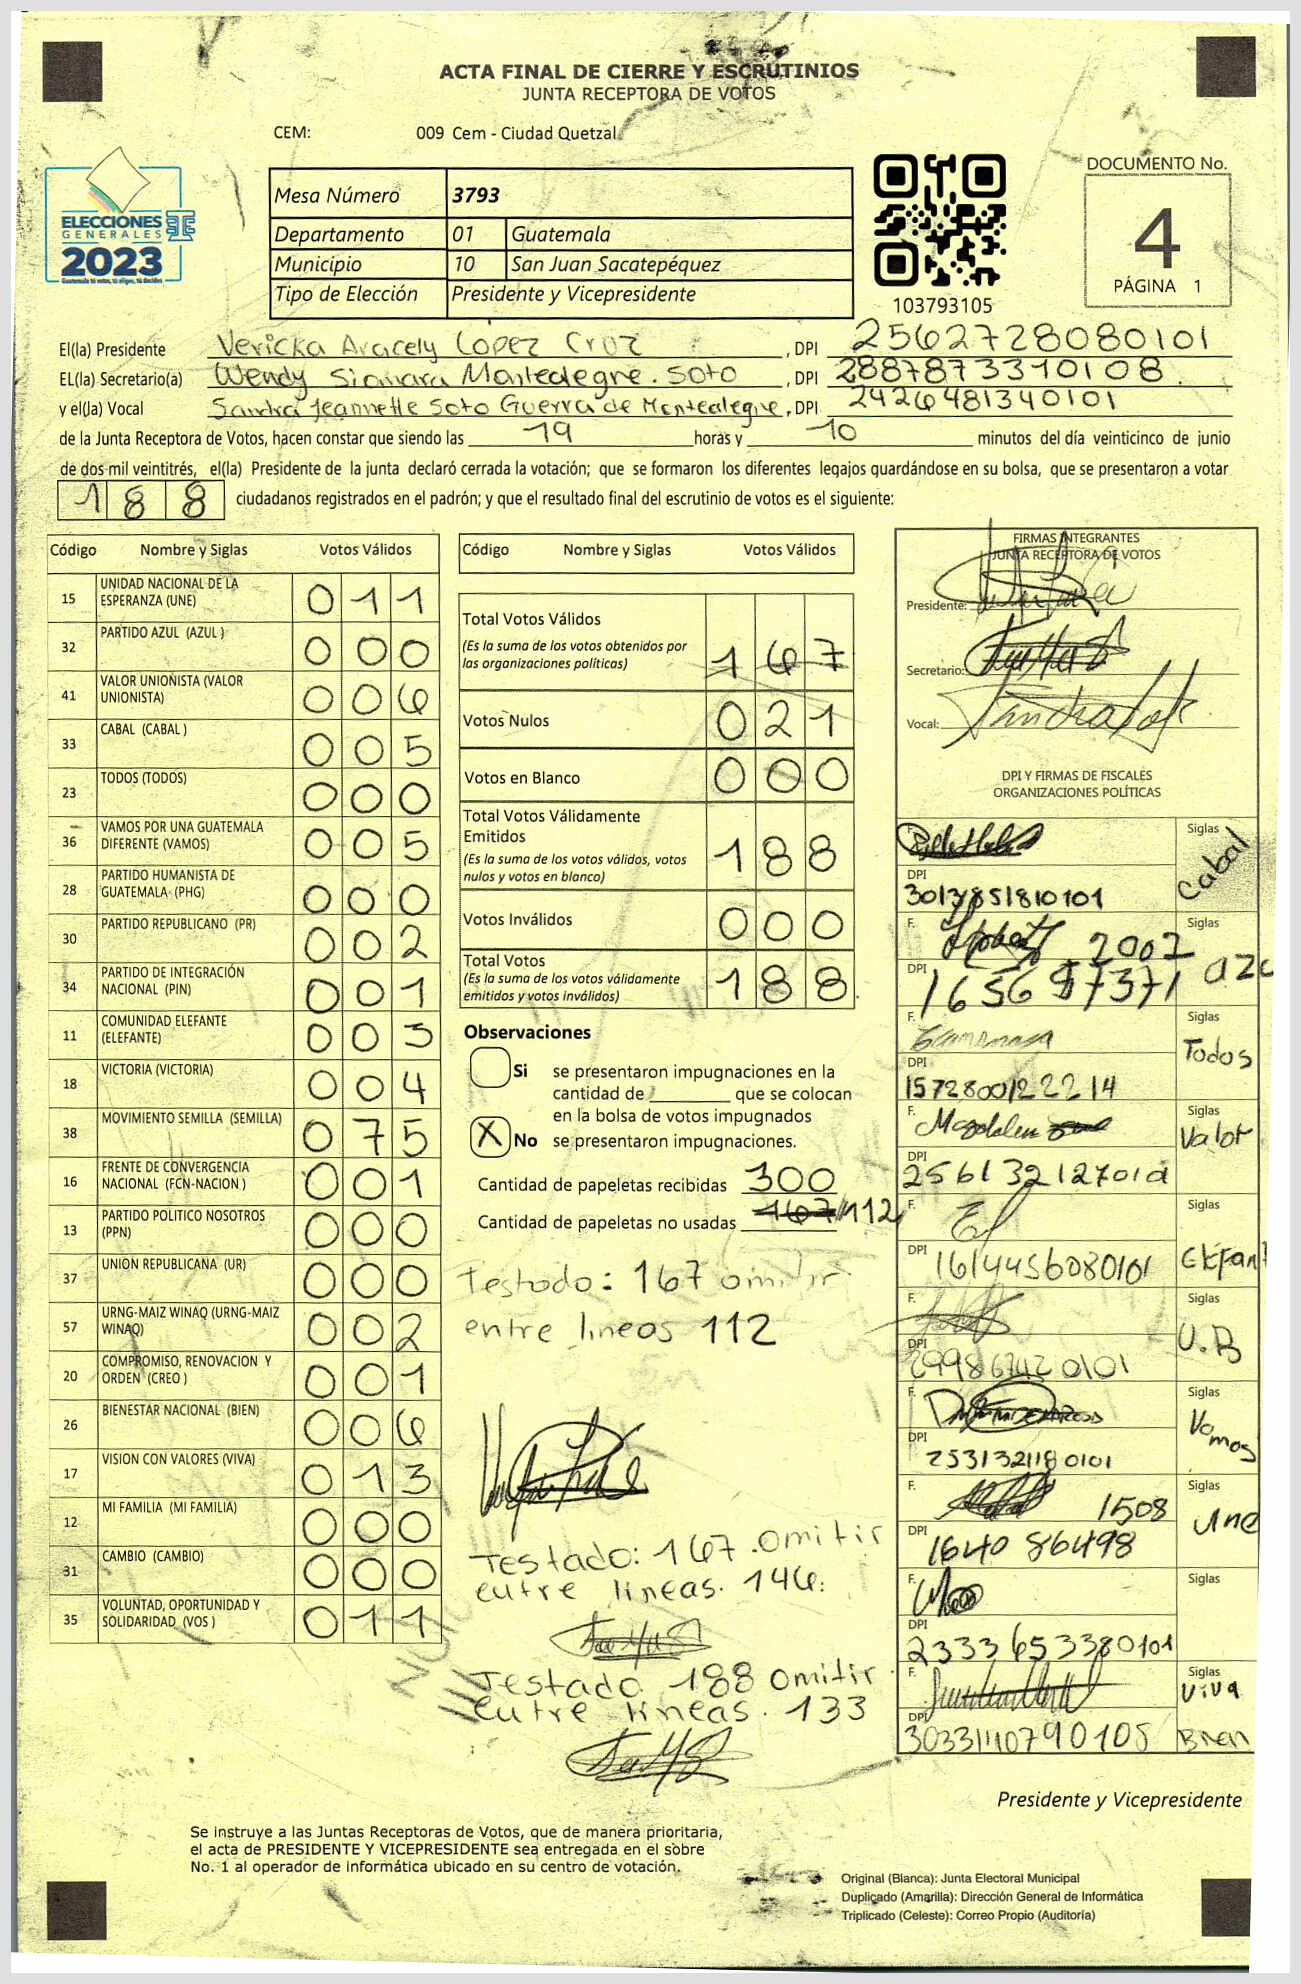 ACTA FINAL DE CIERRE Y ESCRUTINIOS
JUNTA RECEPTORA DE VOTOS
CEM: 009 Cem - Ciudad Quetzal
ELECCIONES
GENERALES
2023
Mesa Número 3793
Departamento 01 Guatemala
Municipio 10 San Juan Sacatepéquez
Tipo de Elección Presidente y Vicepresidente
103793105
DOCUMENTO No.
4
PÁGINA 1
El(la) Presidente Vericka Aracely Lopez Cruz, DPI 2562728080101
EL(la) Secretario(a) Wendy Siomara Montealegre. Soto, DPI 2887873310108
y el(la) Vocal Sandra Jeannette Soto Guerra de Montealegre, DPI 2426481340101
de la Junta Receptora de Votos, hacen constar que siendo las 19 horas y 10 minutos del día veinticinco de junio
de dos mil veintitrés, el(la) Presidente de la junta declaró cerrada la votación; que se formaron los diferentes legajos guardándose en su bolsa, que se presentaron a votar
188 ciudadanos registrados en el padrón; y que el resultado final del escrutinio de votos es el siguiente:
Código Nombre y Siglas Votos Válidos
15 UNIDAD NACIONAL DE LA ESPERANZA (UNE) 011
32 PARTIDO AZUL (AZUL ) 000
41 VALOR UNIONISTA (VALOR UNIONISTA) 006
33 CABAL (CABAL ) 005
23 TODOS (TODOS) 000
36 VAMOS POR UNA GUATEMALA DIFERENTE (VAMOS) 005
28 PARTIDO HUMANISTA DE GUATEMALA (PHG) 000
30 PARTIDO REPUBLICANO (PR) 002
34 PARTIDO DE INTEGRACIÓN NACIONAL (PIN) 001
11 COMUNIDAD ELEFANTE (ELEFANTE) 003
18 VICTORIA (VICTORIA) 004
38 MOVIMIENTO SEMILLA (SEMILLA) 075
16 FRENTE DE CONVERGENCIA NACIONAL (FCN-NACION ) 001
13 PARTIDO POLITICO NOSOTROS (PPN) 000
37 UNION REPUBLICANA (UR) 000
57 URNG-MAIZ WINAQ (URNG-MAIZ WINAQ) 002
20 COMPROMISO, RENOVACION Y ORDEN (CREO ) 001
26 BIENESTAR NACIONAL (BIEN) 006
17 VISION CON VALORES (VIVA) 013
12 MI FAMILIA (MI FAMILIA) 000
31 CAMBIO (CAMBIO) 000
35 VOLUNTAD, OPORTUNIDAD Y SOLIDARIDAD (VOS ) 011
Código Nombre y Siglas Votos Válidos
Total Votos Válidos 167
(Es la suma de los votos obtenidos por
las organizaciones políticas)
Votos Nulos 021
Votos en Blanco 000
Total Votos Válidamente
Emitidos 188
(Es la suma de los votos válidos, votos
nulos y votos en blanco)
Votos Inválidos 000
Total Votos 188
(Es la suma de los votos válidamente
emitidos y votos inválidos)
Observaciones
Si se presentaron impugnaciones en la
cantidad de ________ que se colocan
en la bolsa de votos impugnados
X No se presentaron impugnaciones.
Cantidad de papeletas recibidas 300
Cantidad de papeletas no usadas 167 112
Testado: 167 omitir
entre lineas 112
Testado: 167. Omitir
entre lineas. 146.
Testado 188 Omitir
Entre lineas. 133
FIRMAS INTEGRANTES
JUNTA RECEPTORA DE VOTOS
Presidente:
Secretario:
Vocal:
DPI Y FIRMAS DE FISCALES
ORGANIZACIONES POLÍTICAS
F. Siglas Cabal
DPI
F. 2007 Siglas
DPI
F. Siglas Todos
DPI 1572800122214
F. Magdalena Siglas Valor
DPI
F. Siglas
DPI 1614456080101
F. Siglas
DPI 299867420101
F. Siglas Vamos
DPI 2531321180101
F. 1508 Siglas Une
DPI 1640 86498
F. Siglas
DPI 2333653380101
F. Siglas Viva
DPI Bien
Presidente y Vicepresidente
Se instruye a las Juntas Receptoras de Votos, que de manera prioritaria,
el acta de PRESIDENTE Y VICEPRESIDENTE sea entregada en el sobre
No. 1 al operador de informática ubicado en su centro de votación.
Original (Blanca): Junta Electoral Municipal
Duplicado (Amarilla): Dirección General de Informática
Triplicado (Celeste): Correo Propio (Auditoría)